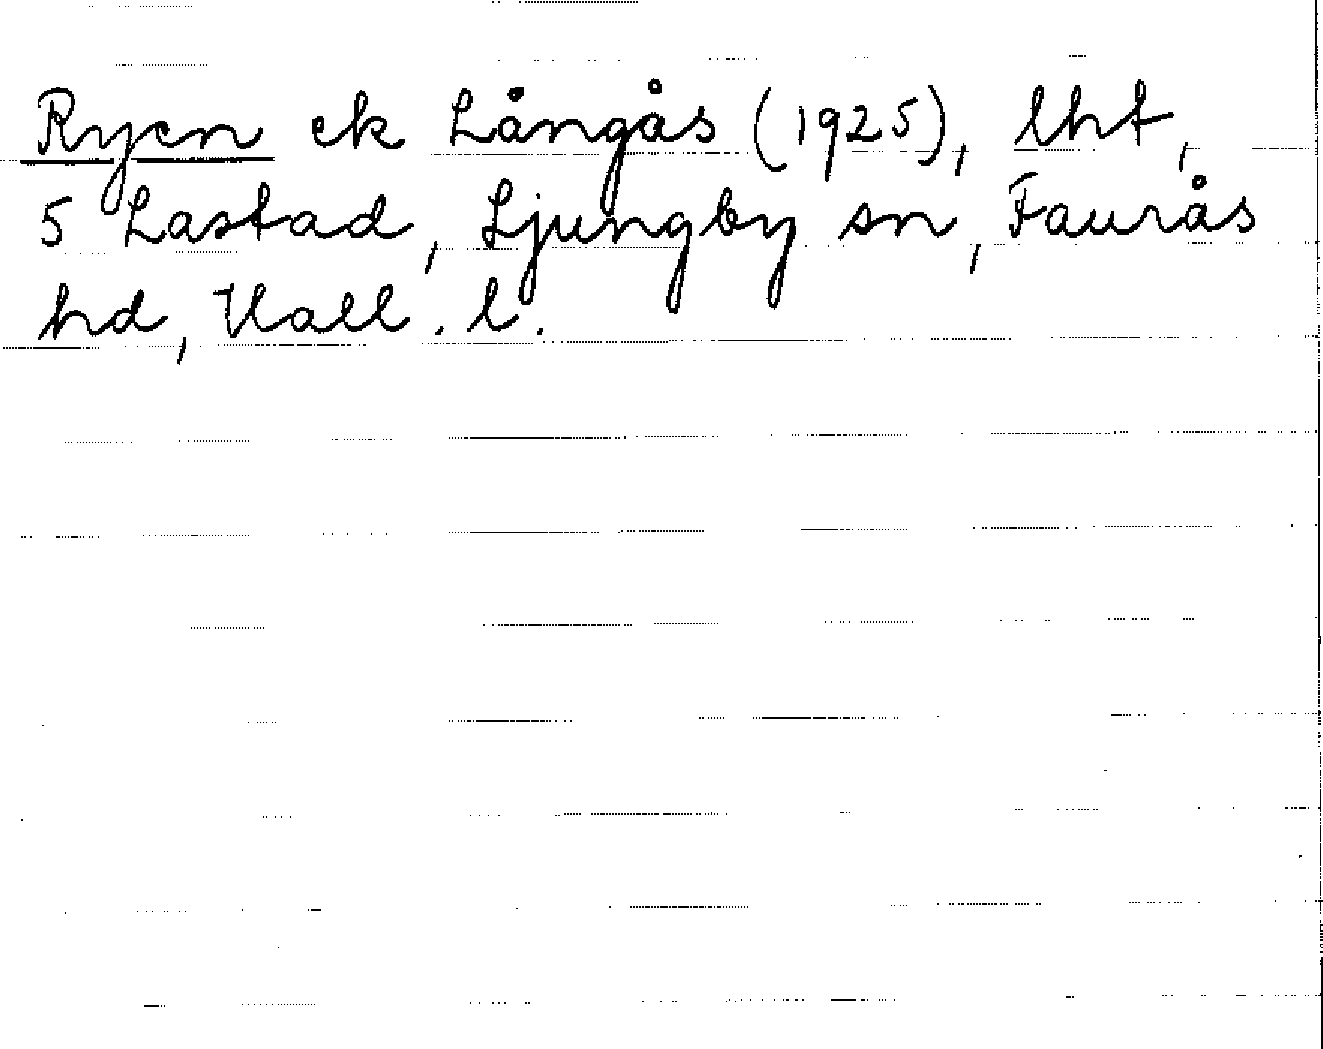 Rycn ek Långås (1925), lht,
5 Lastad, Ljungby sn, Faurås
hd, Hall. l.